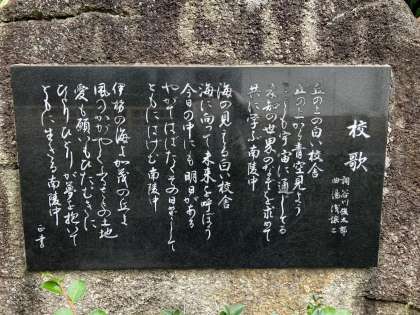 校歌
詞 谷川俊太郎
曲 湯浅譲二
丘の上の白い校舎
丘の上から青空見よう
こころ宇宙に通じてる
未知の世界のなぞを求めて
共に学ぶ南陵中
海の見える白い校舎
海に向って未来を呼ぼう
今日の中にも明日がある
やがてはばたくその日めざして
ともにはげむ南陵中
伊勢の海よ の丘よ
風かがやくふるさとの土地
愛も願いも
ひとりひとりが夢を抱いて
ともに生きる南陵中